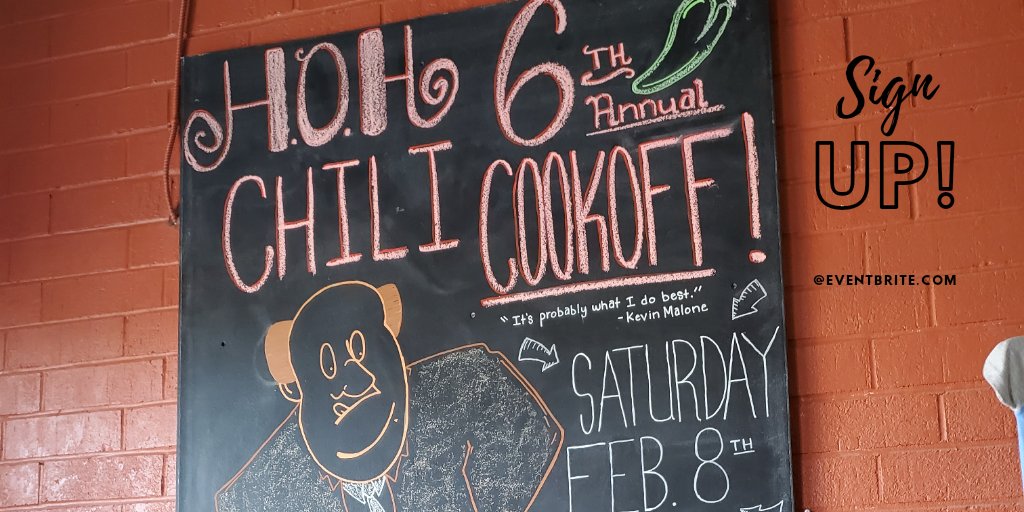 H.O.H 6TH
Annual
CHILI COOKOFF!
"It's probably what I do best."
- Kevin Malone
SATURDAY
FEB. 8TH
Sign
UP!
@EVENTBRITE.COM